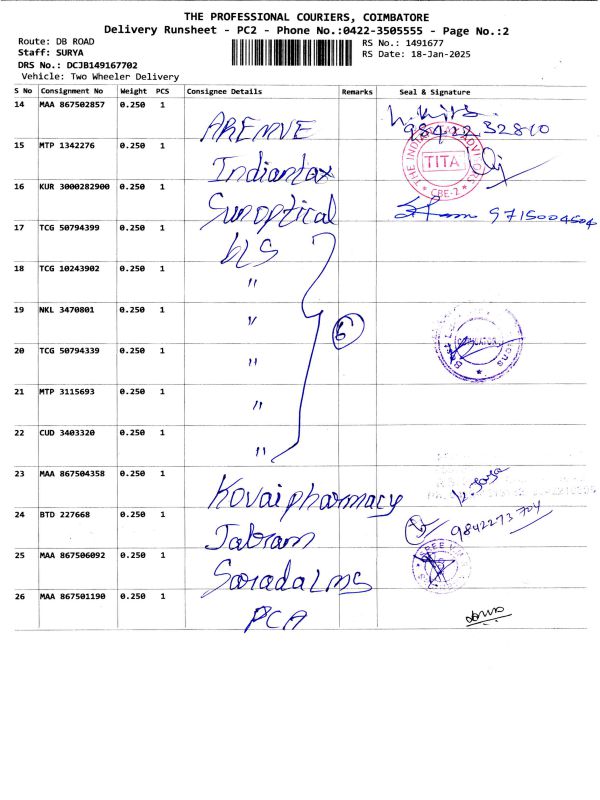 THE PROFESSIONAL COURIERS, COIMBATORE
Delivery Runsheet - PC2 - Phone No.:0422-3505555 - Page No.:2
Route: DB ROAD
RS No.: 1491677
Staff: SURYA
RS Date: 18-Jan-2025
DRS No.: DCJB149167702
Vehicle: Two Wheeler Delivery
S No Consignment No Weight PCS Consignee Details Remarks Seal & Signature
14 MAA 867502857 0.250 1 AREMVE 98422 32810
15 MTP 1342276 0.250 1 Indiantax THE INDIAN TAX ADVISORS TITA CBE-2
16 KUR 3000282900 0.250 1 Sun optical 9715004504
17 TCG 50794399 0.250 1 bLS
18 TCG 10243902 0.250 1 "
19 NKL 3470801 0.250 1 " 6
20 TCG 50794339 0.250 1 "
21 MTP 3115693 0.250 1 "
22 CUD 3403320 0.250 1 "
23 MAA 867504358 0.250 1 Kovai pharmacy
24 BTD 227668 0.250 1 Jabram 9842273704
25 MAA 867506092 0.250 1 Sarada LMS
26 MAA 867501190 0.250 1 PCA